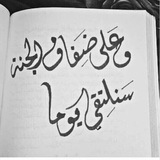 وعلى ضفاف الجنة
سنلتقي يوما